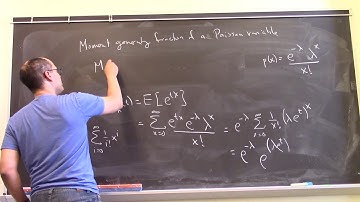 Moment generating function of a Poisson variable
p(x) = e^{-λ} λ^x / x!
M
(t) = E[e^{tx}]
= ∑_{x=0}^{∞} e^{tx} e^{-λ} λ^x / x! = e^{-λ} ∑_{i=0}^{∞} 1/x! (λe^t)^x
∑_{i=0}^{∞} 1/i! x^i
= e^{-λ} e^{(λe^t)}